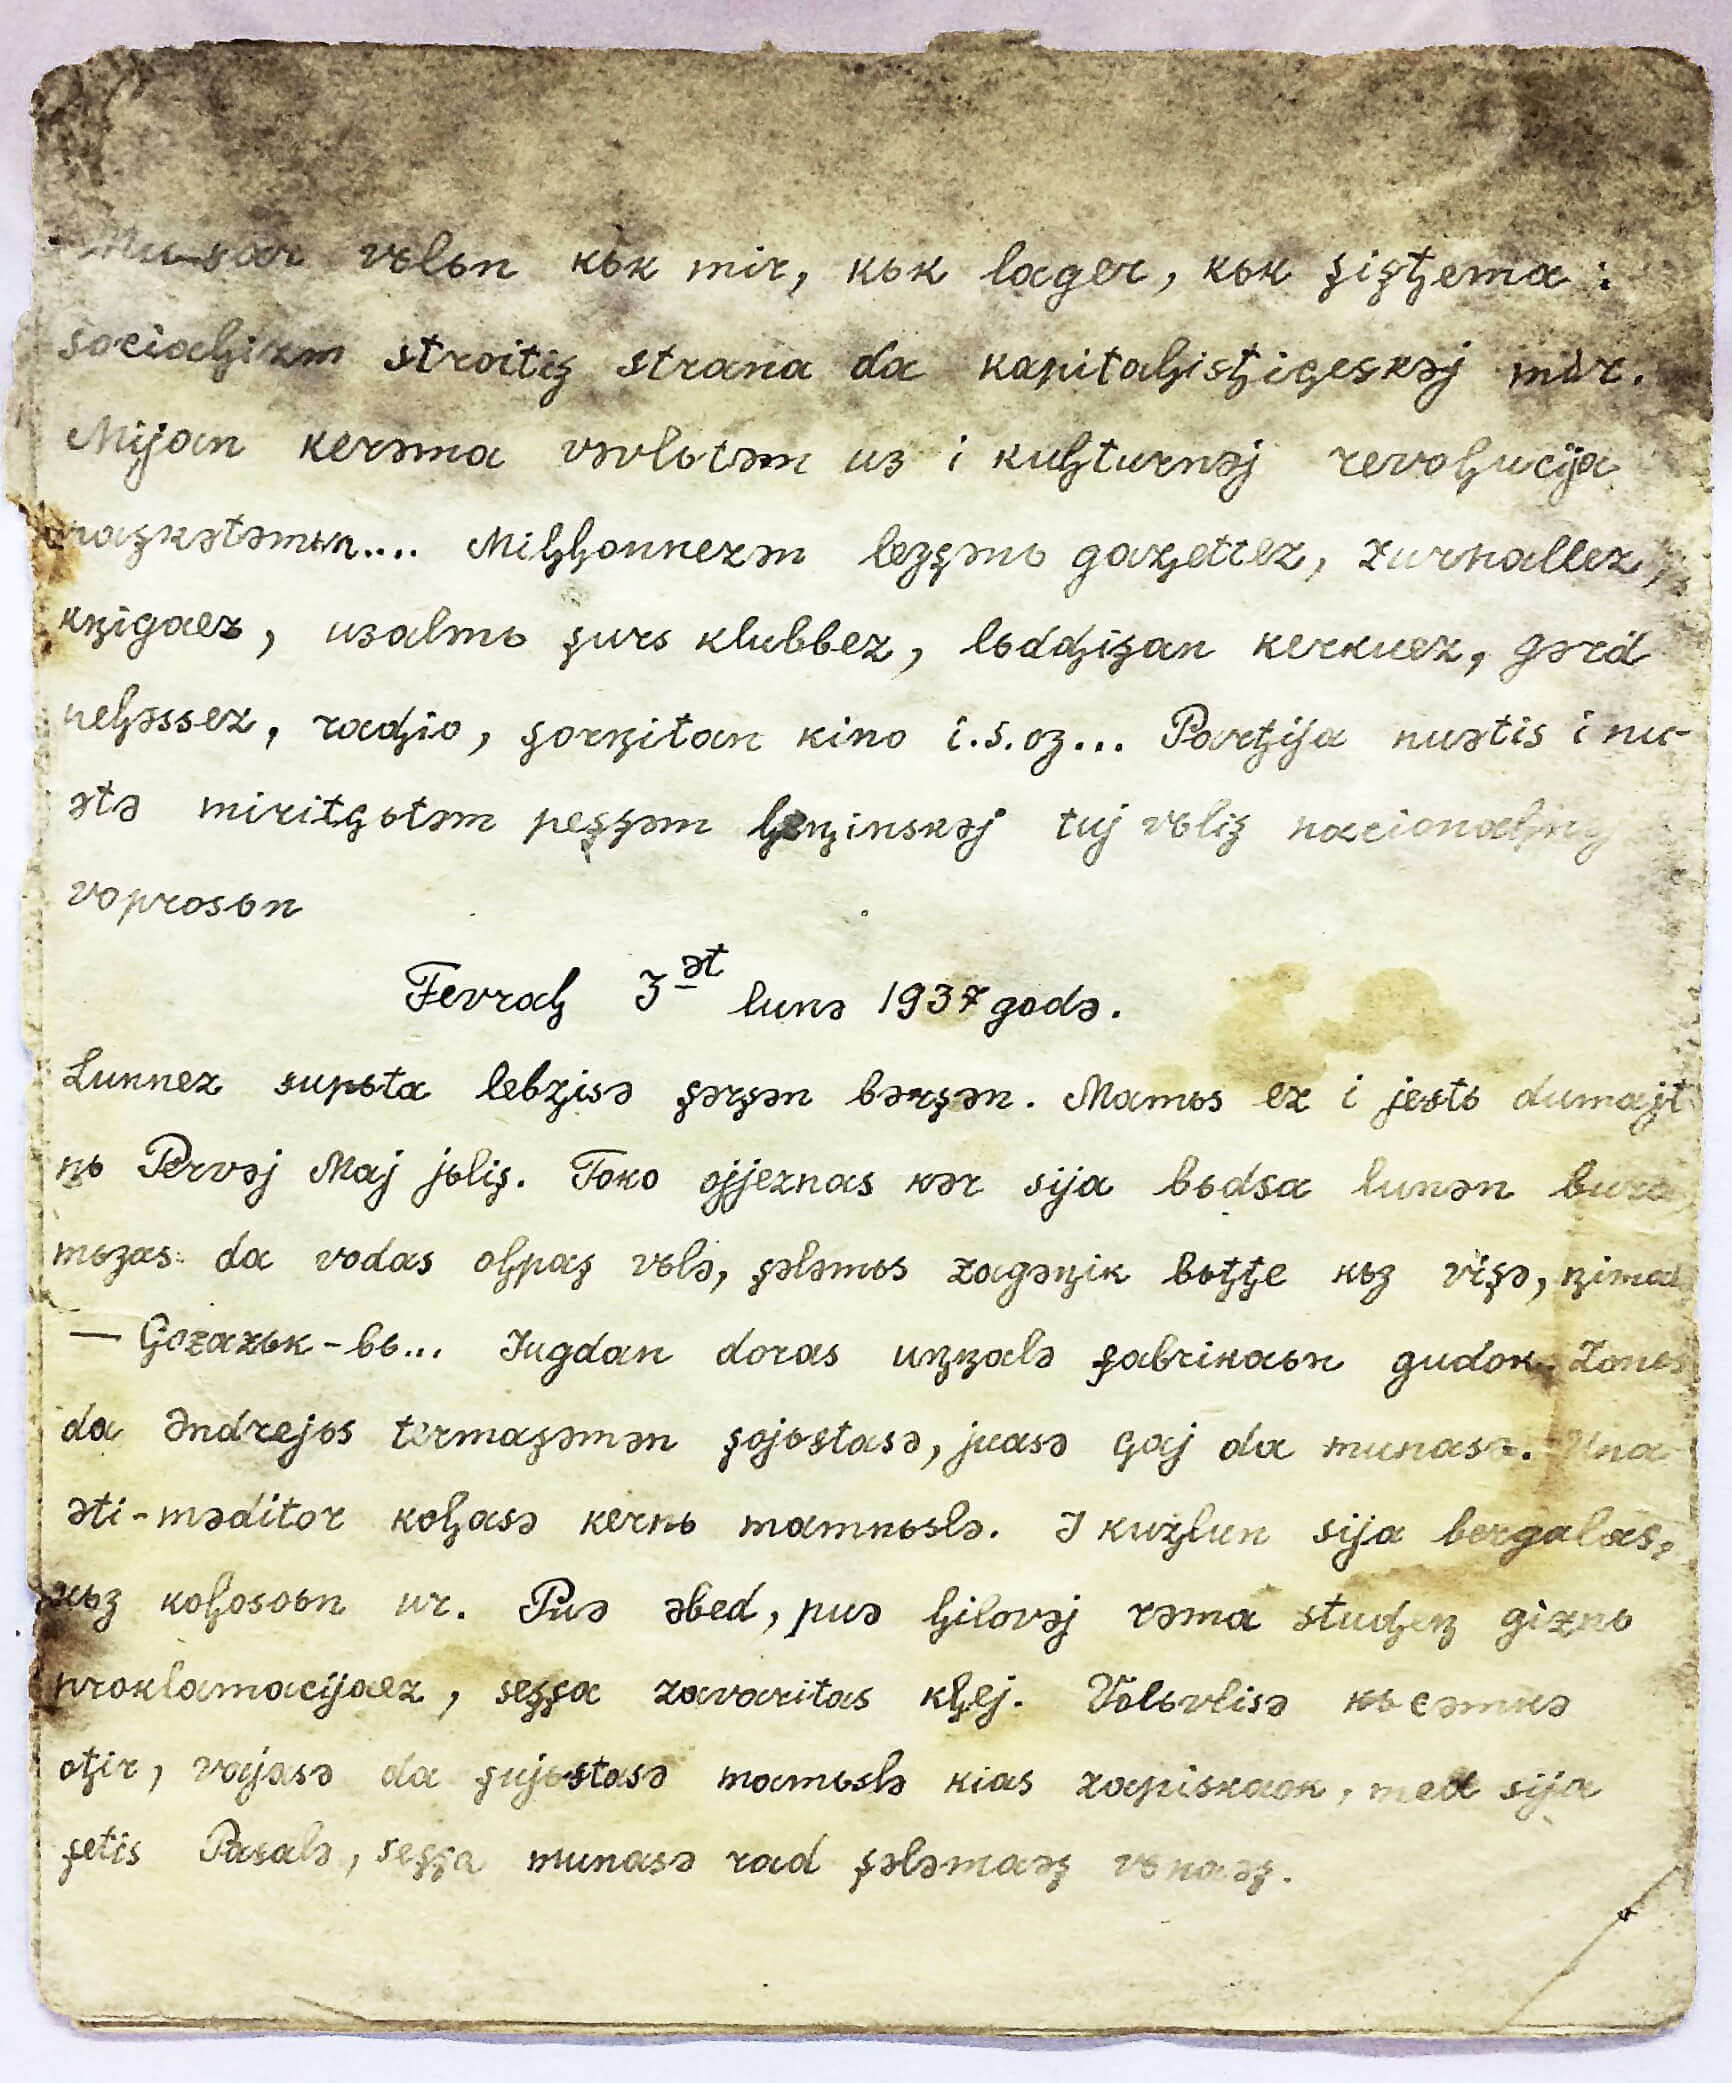 Mu-sar vьlьn kьk mir, kьk lager, kьk şişţema:
socialļizm stroitiş strana da kapitaļisţiçeskəj mir.
Mijan kerəma vəvlьtəm uƶ i kuļturnəj revoļucija
nuəzkətəmьn.... Miļļonnezən lezşənь gaⱬettez, zurnallez,
kꞑigaez, uƶalənь şurs klubbez, lьdḑişan kerkuez, gərd
peļəssez, raḑio, şorꞑitan kino i.s.oz... Parţija nuətis i nu-
ətə miritçьtəm peşşəm ļeꞑinskəj tuj vьliş nacionaļnəj
voprosьn
Fevraļ 3ət lunə 1937 godə.
Lunnez supьta lebⱬisə şərşən bərşən. Mamьs ez i jestь dumajt
nь Pervəj Maj jьliş. Toko ojjeznas kər sija bьdsa lunən bura
mьⱬas da vodas oļpaş vьlə, şələmьs zagəꞑik bьţţe kьⱬ vişə, ꞑimalə
— Gozazьk-bь... Jugdan doras uꞑⱬalə fabrikaьn gudok. Zonьs
da Əndrejьs termaşəmən şojьstasə, juasə çaj da munasə. Una
əti-məditor koļasə kernь mamnьslə. I kuⱬlun sija bergalas,
kьⱬ koļosoьn ur. Puə əbed, puə ļilovəj rəma studḑeꞑ giznь
proklamacijaez, seşşa zavaritas kļej. Vьlьvlisə kьcəmkə
oţir, vajasə da şujьstasə mamьslə kias zapiskaok, med sija
şetis Pasalə, seşşa munasə rad şələmaəş vьnaəş.